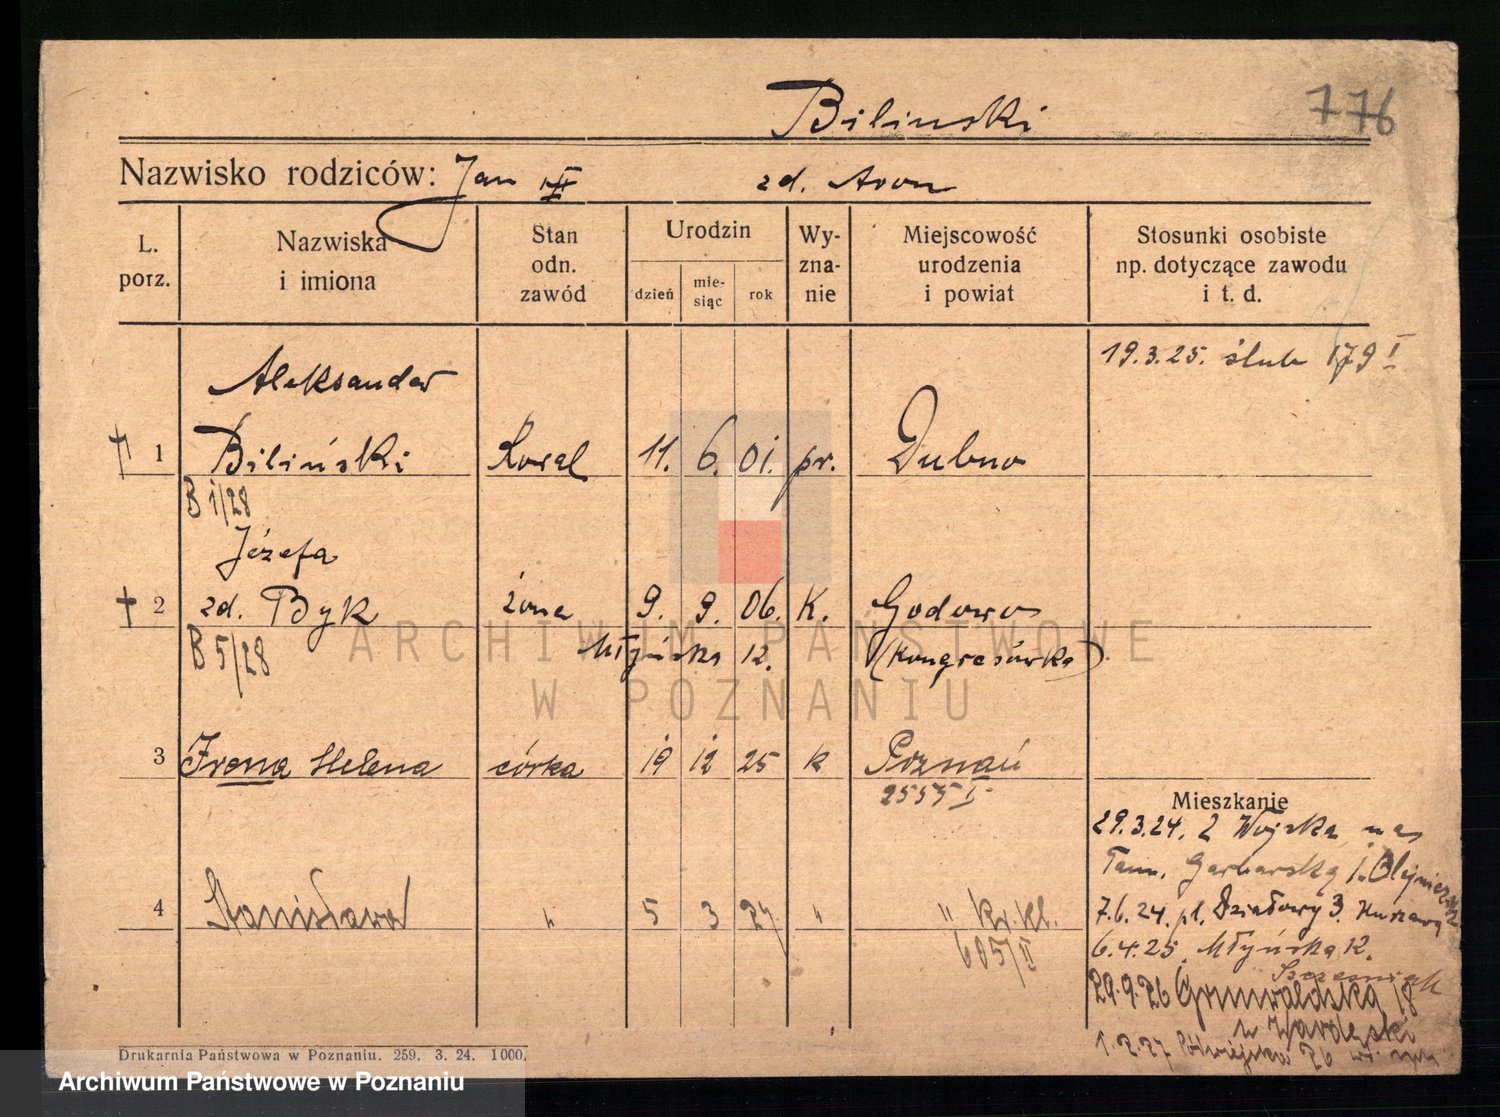 Bilinski
776
Nazwisko rodziców: Jan zd. Aron
L. porz.
Nazwiska i imiona
Stan odn. zawód
Urodzin
dzień
mie-siąc
rok
Wy-zna-nie
Miejscowość urodzenia i powiat
Stosunki osobiste np. dotyczące zawodu i t. d.
19.3.25. ślub 179 I
Aleksander
1 Biliński Kowal 11. 6. 01. pr. Dubno
B 1/28
Józefa
2 zd. Byk żona 9. 9. 06. K. Godowo
B 5/28 Młyńska 12. (Kongresówka)
3 Irena Helena córka 19 12 25 k Poznań
2555 I
4 Stanisława " 5 3 27 " " kr. kl.
605/II
Mieszkanie
29.3.24. Wojska
Garbarska 1.
7.6.24. pl. Działowy 3.
6.4.25. Młyńska 12.
29.9.26 Grunwaldzka 18
1.2.27 Półwiejska 26
Drukarnia Państwowa w Poznaniu. 259. 3. 24. 1000.
ARCHIWUM PAŃSTWOWE
W POZNANIU
Archiwum Państwowe w Poznaniu